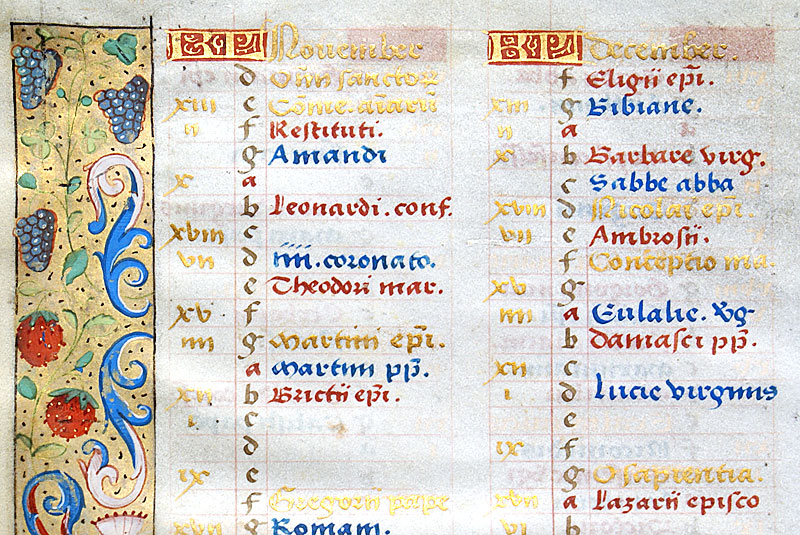 November
d Om̄ sanctorū
xiii e Cōme. aīarū
ii f Restituti.
g Amandi
x a
b Leonardi. conf.
xviii c
vii d iiii. coronato.
e Theodori mar.
xv f
iiii g Martini ep̄i.
a Martini pp̄.
xii b Brictii ep̄i.
i c
d
ix e
f Gregorii pape
xvii g Romani.
December.
f Eligii ep̄i.
xiii g Bibiane.
ii a
x b Barbare virg.
c Sabbe abba
xviii d Nicolai ep̄i.
vii e Ambrosii.
f Conceptio ma.
xv g
iiii a Eulalie. vg
b Damasci pp̄.
xii c
i d Lucie virginis
e
ix f
g O sapientia.
xvii a Lazarii episco
vi b